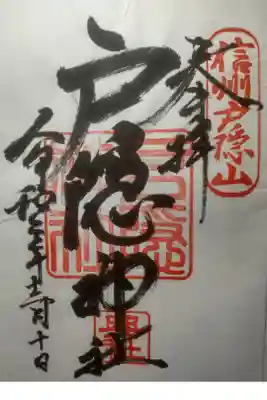 信州戸隠山
奉拝
戸隠神社
令和 年十一月十日